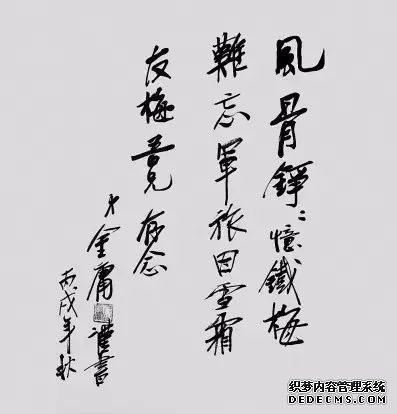 風骨錚々憶鐵梅
難忘軍旅因雪霜
友梅吾兄存念
弟金庸謹書
丙戌年秋
织梦内容管理系统
DEDECMS.COM